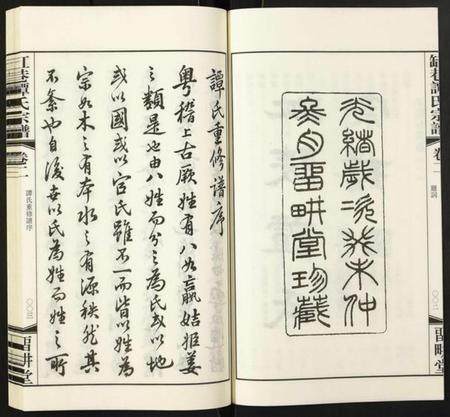 缸巷譚氏宗譜
卷二
題詞
〇〇二
留畊堂
光緒歲次癸未仲
月留畊堂珍藏
譚氏重修譜序
粵稽上古厥姓有八如嬴姞姬姜
之類是也由八姓而分之為氏或以地
或以國或以官氏雖不一而皆以姓為
宗如木之有本水之有源秩然其
不紊也自後世以氏為姓而姓之所
缸巷譚氏宗譜
卷二
譚氏重修譜序
〇〇三
留畊堂